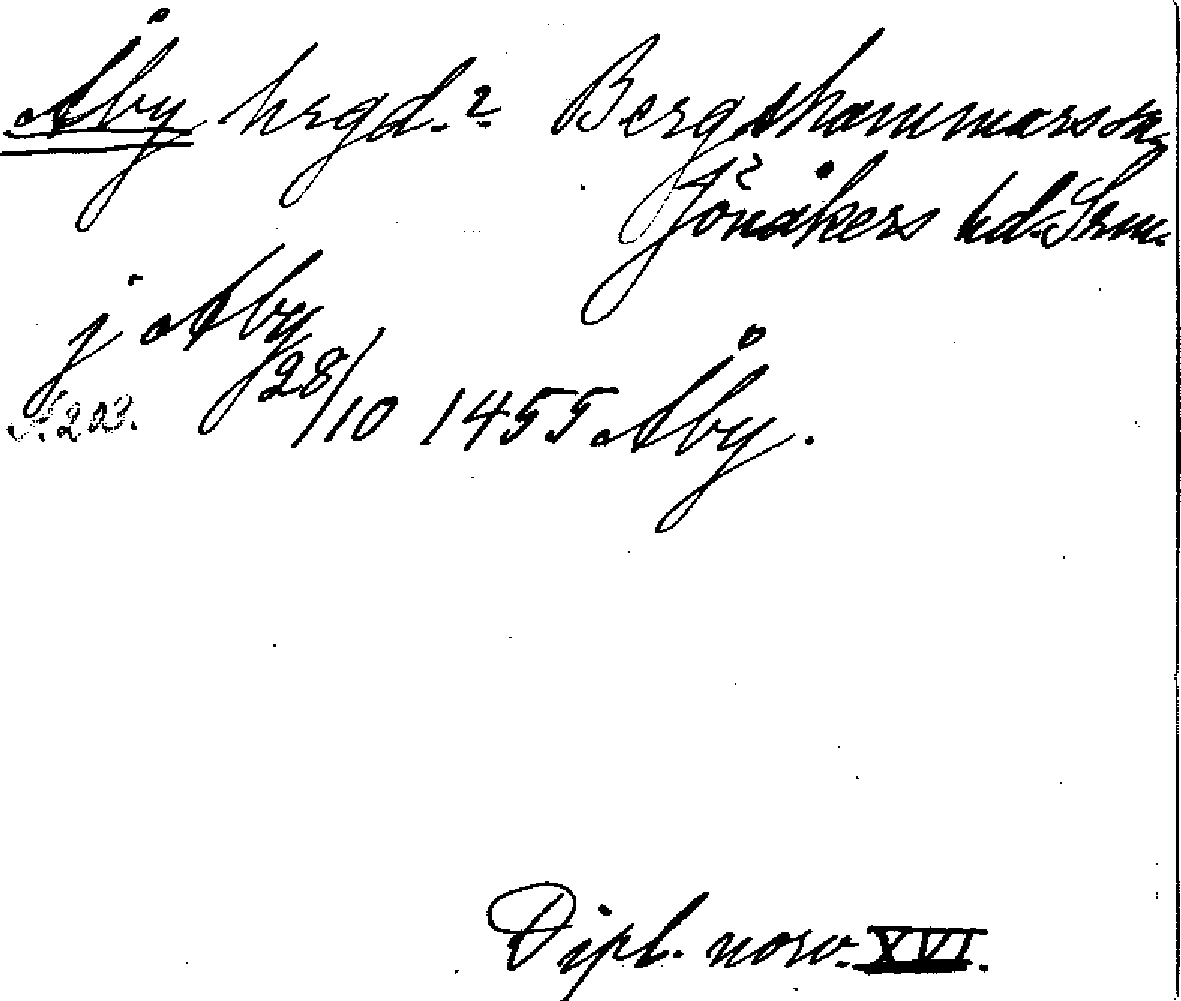 Åby hrgd.? Bergshammars sn,
Jönåkers hd. Srm.
j Aby
28/10 1455 Åby.
S. 203.
Dipl. norv. XVI.